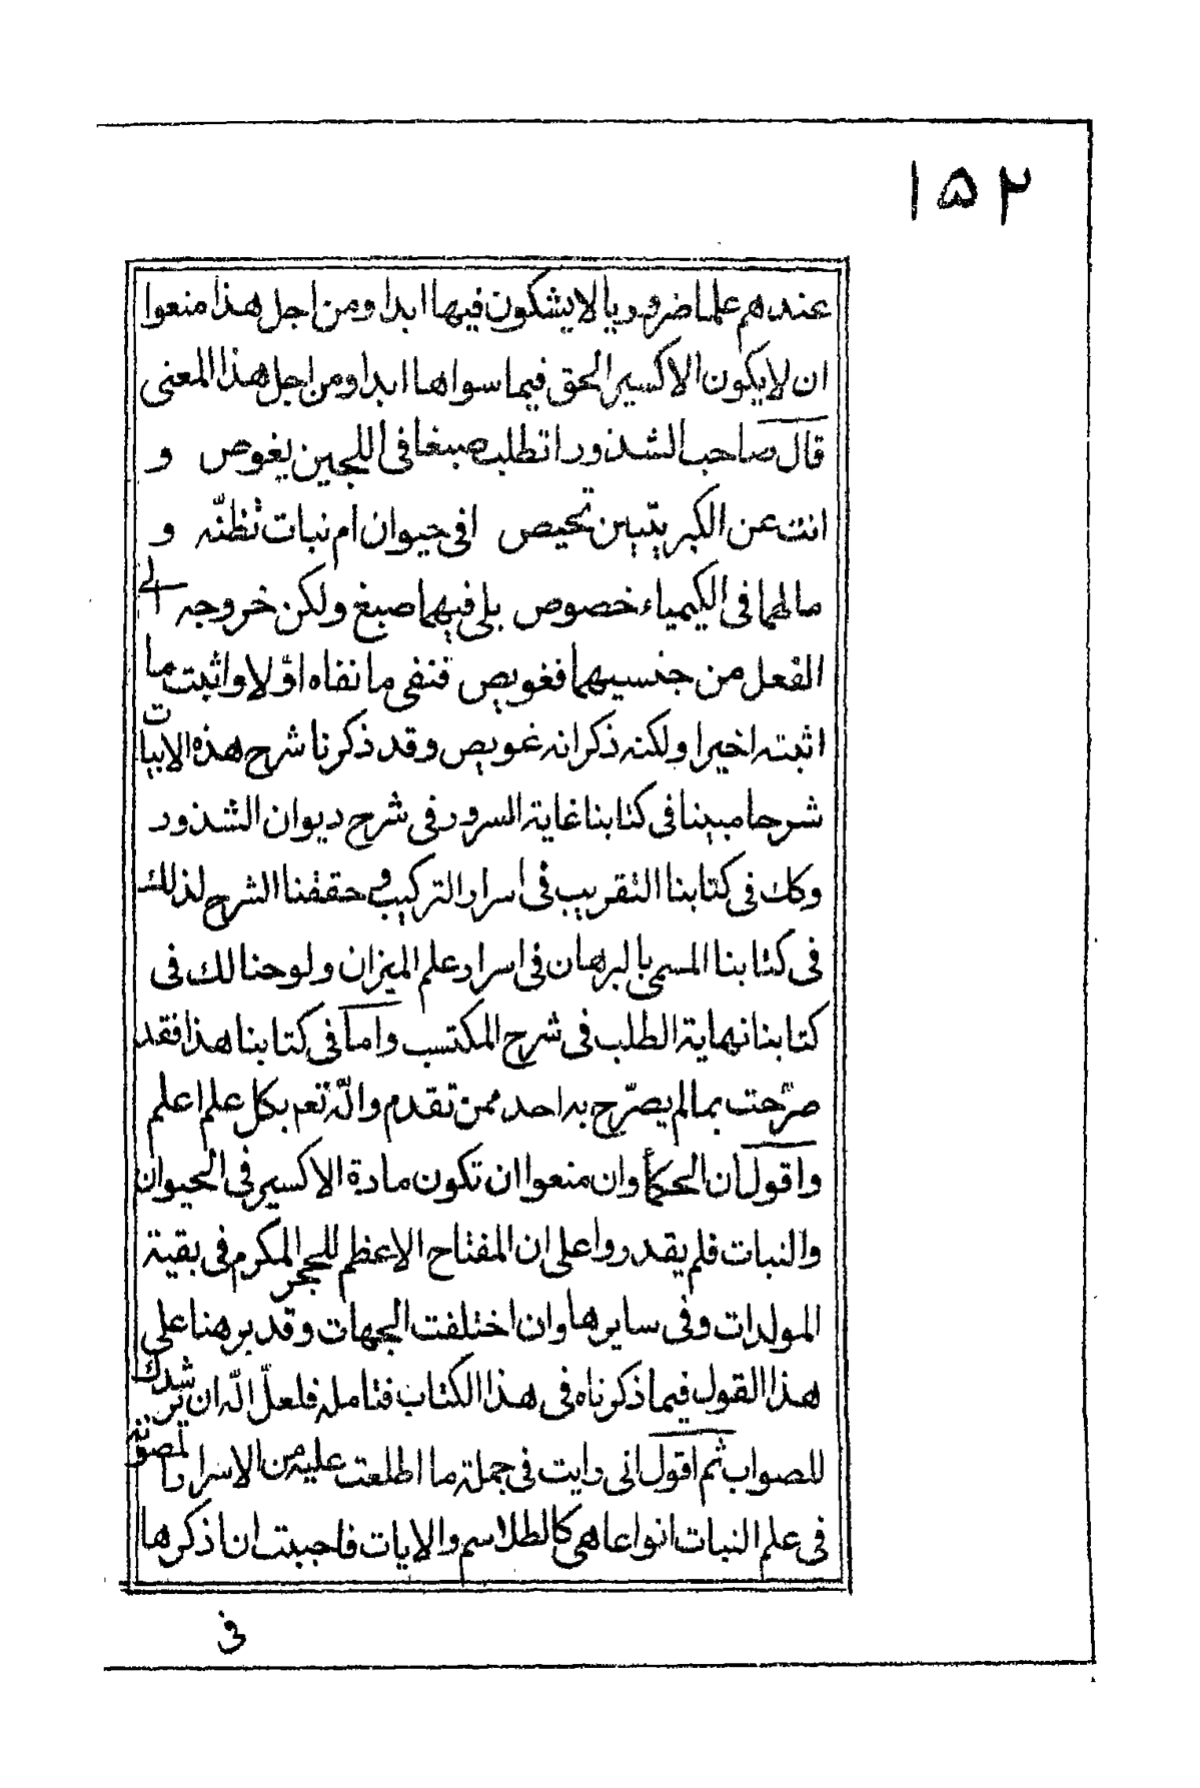 ١٥٢
عندهم علما ضروريا لا يشكون فيها ابدا ومن اجل هذا منعوا
ان لا يكون الاكسير الحق فيما سواها ابدا ومن اجل هذا المعنى
قال صاحب الشذور اتطلب صبغا في اللجين يغوص و
انت عن الكبريتيين تحيص افي حيوان ام نبات تظنّه و
مالهما في الكيمياء خصوص بلى فيهما صبغ ولكن خروجه الى
الفعل من جنسيهما فغويص فنفى ما نفاه اوّلا واثبت ما
اثبته اخيرا ولكنه ذكر انه غويص وقد ذكرنا شرح هذه الابيات
شرحا مبينا في كتابنا غاية السرور في شرح ديوان الشذور
وكك في كتابنا التقريب في اسرار التركيب و حققنا الشرح لذلك
في كتابنا المسمى بالبرهان في اسرار علم الميزان ولوحنا لك في
كتابنا نهاية الطلب في شرح المكتسب واما في كتابنا هذا فقد
صرّحت بما لم يصرّح به احد ممن تقدم والله تعم بكل علم اعلم
واقول ان الحكمأ وان منعوا ان تكون مادة الاكسير في الحيوان
والنبات فلم يقدروا على ان المفتاح الاعظم للحجر المكرم في بقية
المولدات وفي سايرها وان اختلفت الجهات وقد برهنا على
هذا القول فيما ذكرناه في هذا الكتاب فتامله فلعلّ الله ان يرشدك
للصواب ثم اقول انى رايت في جملة ما اطلعت عليه من الاسرار المصونة
في علم النبات انواعا هي كالطلاسم والايات فاحببت ان اذكرها
في